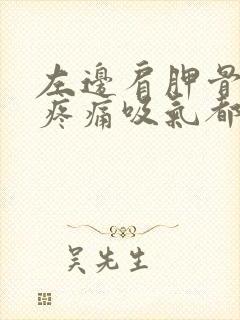 左邊肩胛骨
疼痛吸氣都
吳先生